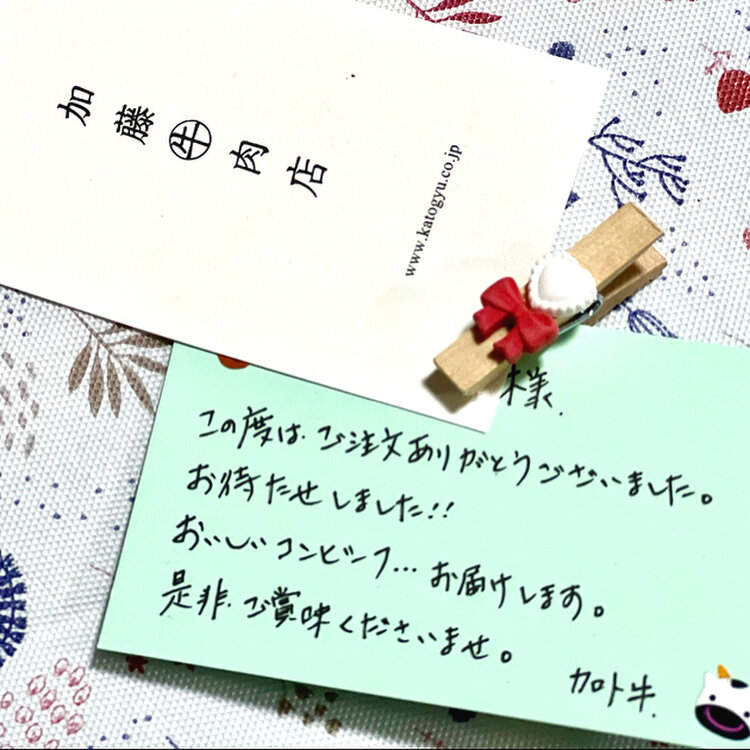 加藤牛肉店
www.katogyu.co.jp
様.
この度は、ご注文ありがとうございました。
お待たせしました!!
おいしいコンビーフ…お届けします。
是非、ご賞味くださいませ。
カロト牛.